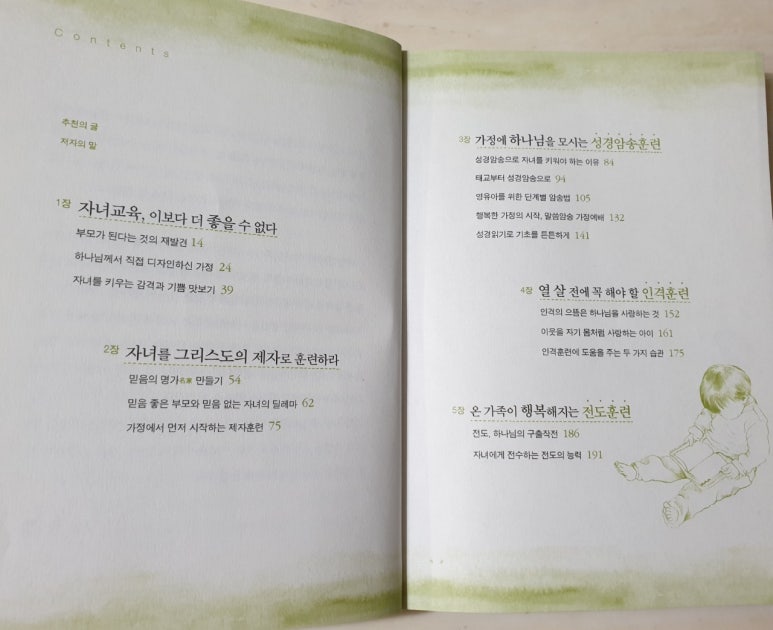 Contents
추천의 글
저자의 말
1장 자녀교육, 이보다 더 좋을 수 없다
부모가 된다는 것의 재발견 14
하나님께서 직접 디자인하신 가정 24
자녀를 키우는 감격과 기쁨 맛보기 39
2장 자녀를 그리스도의 제자로 훈련하라
믿음의 명가名家 만들기 54
믿음 좋은 부모와 믿음 없는 자녀의 딜레마 62
가정에서 먼저 시작하는 제자훈련 75
3장 가정에 하나님을 모시는 성경암송훈련
성경암송으로 자녀를 키워야 하는 이유 84
태교부터 성경암송으로 94
영유아를 위한 단계별 암송법 105
행복한 가정의 시작, 말씀암송 가정예배 132
성경읽기로 기초를 튼튼하게 141
4장 열 살 전에 꼭 해야 할 인격훈련
인격의 으뜸은 하나님을 사랑하는 것 152
이웃을 자기 몸처럼 사랑하는 아이 161
인격훈련에 도움을 주는 두 가지 습관 175
5장 온 가족이 행복해지는 전도훈련
전도, 하나님의 구출작전 186
자녀에게 전수하는 전도의 능력 191